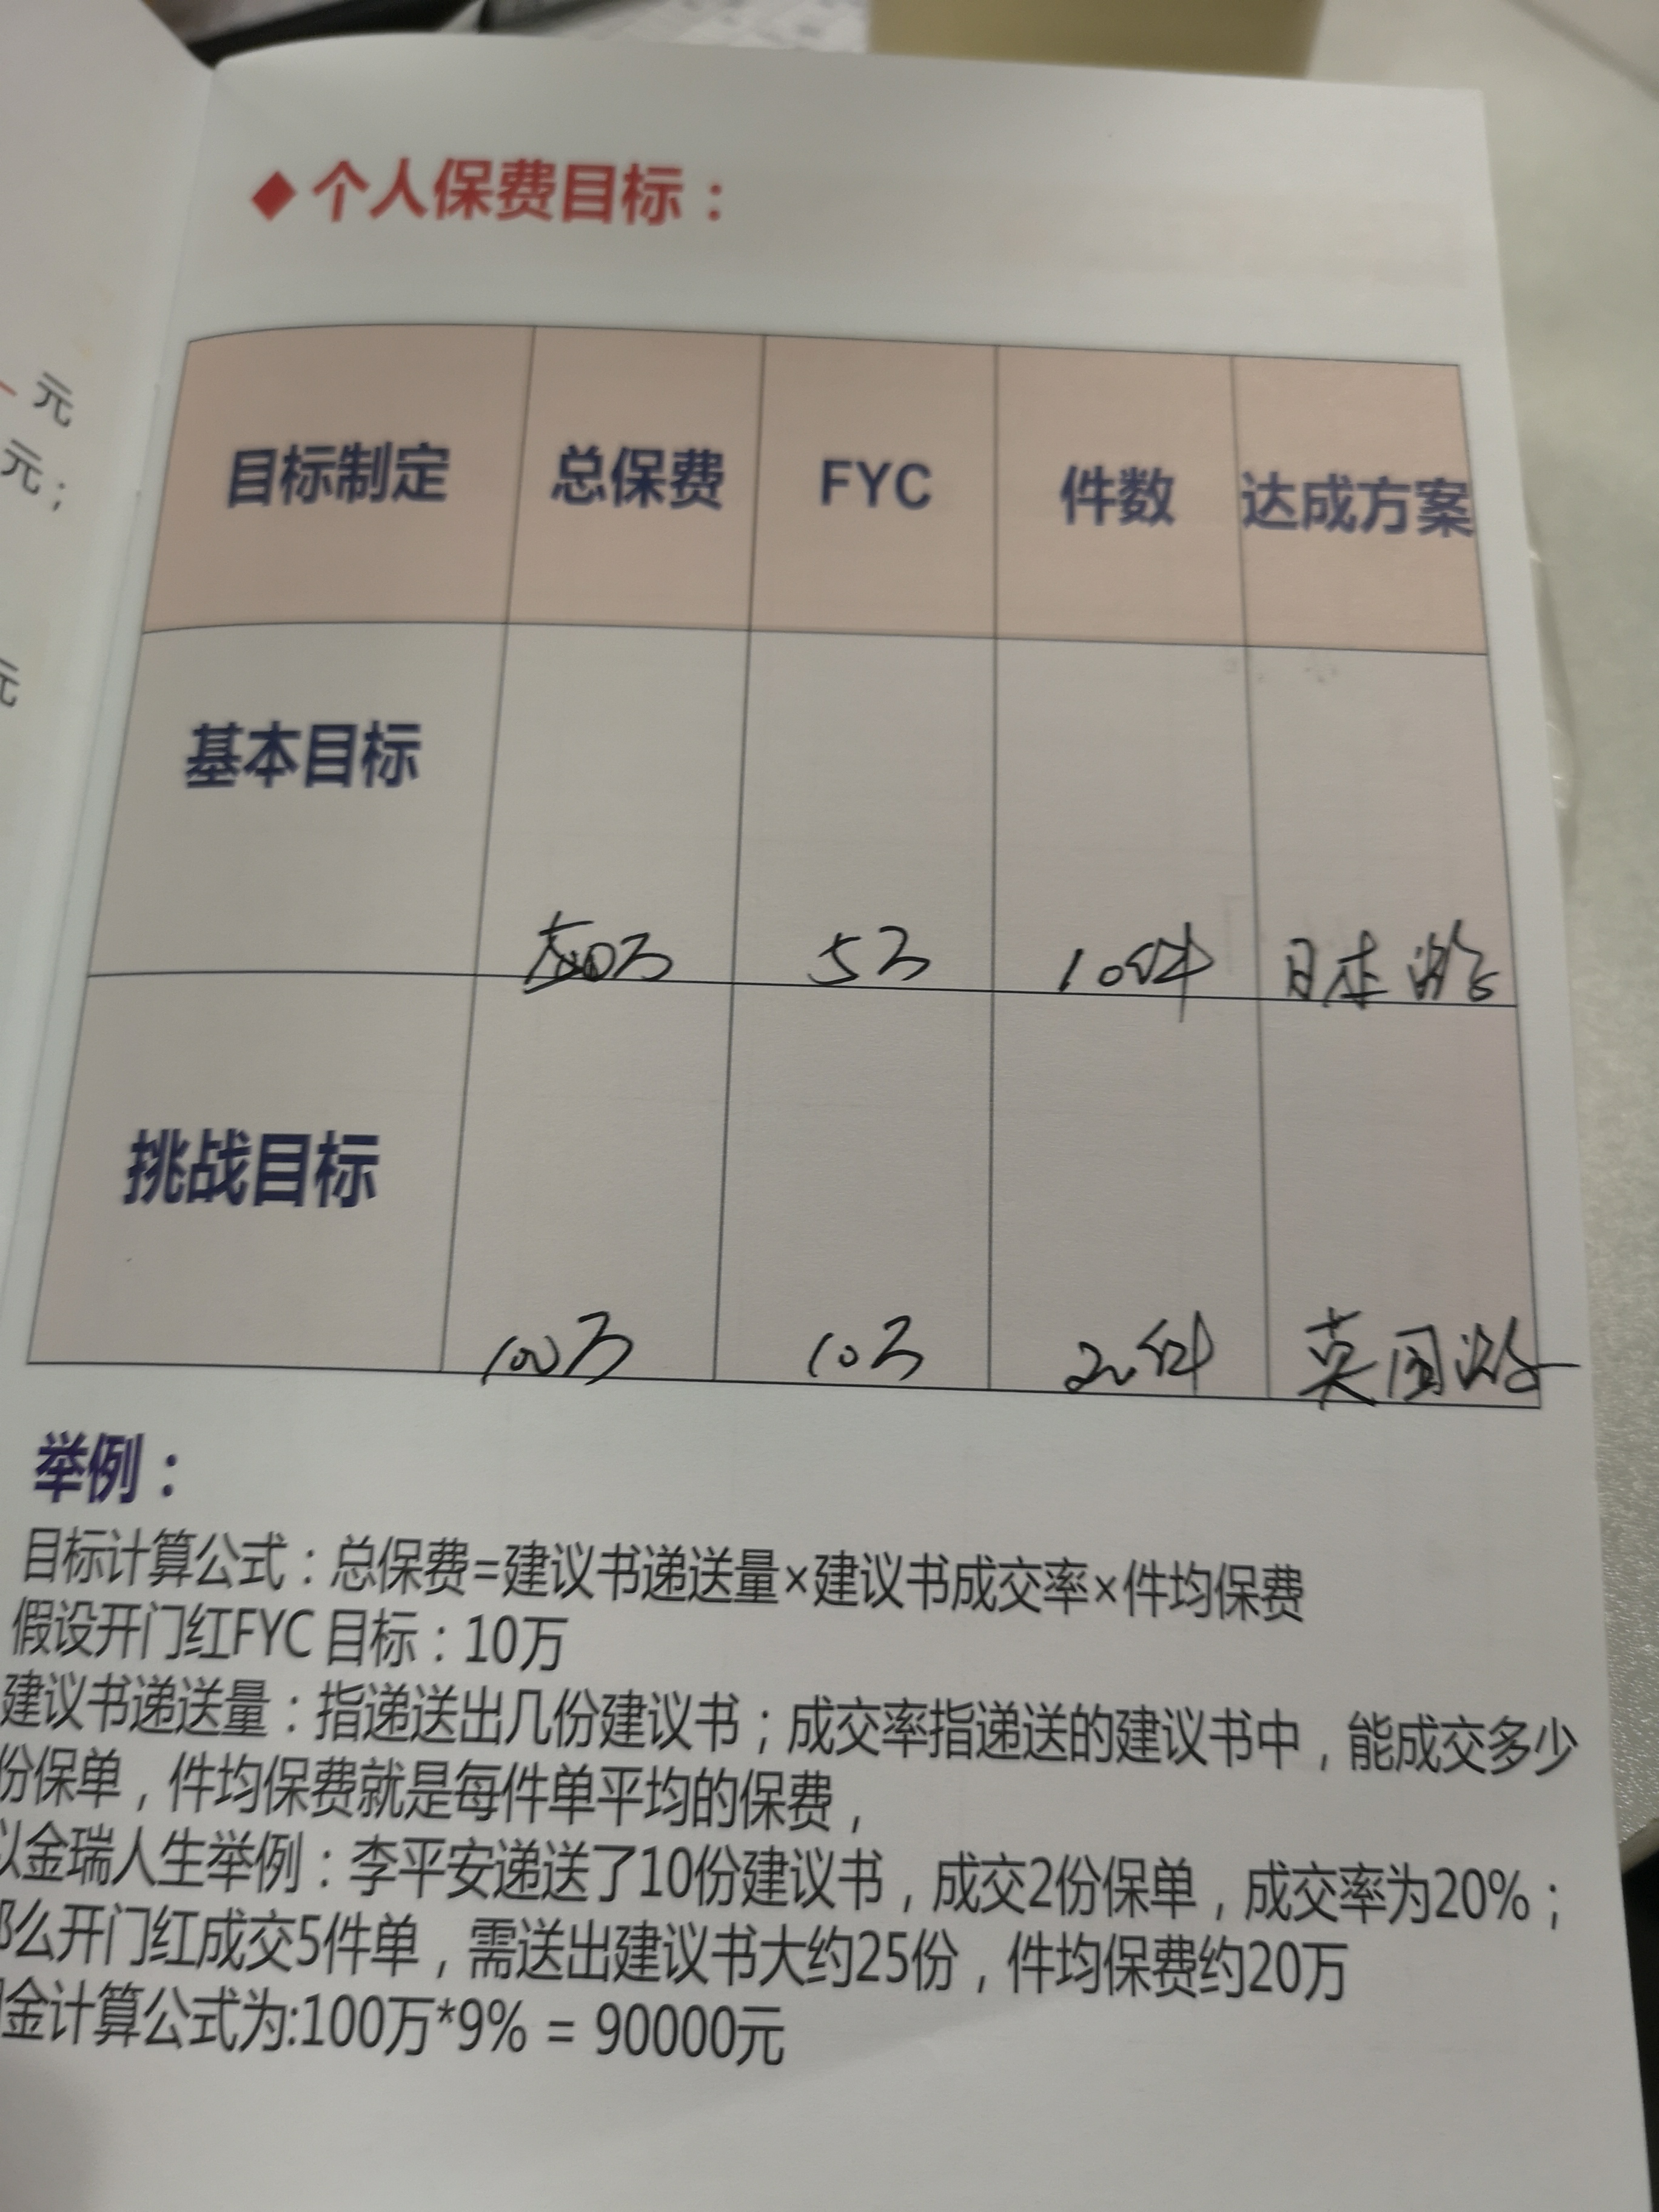 元
元；
元
◆个人保费目标：
目标制定 总保费 FYC 件数 达成方案
基本目标 万 5万 10件 日本游
挑战目标 100万 10万 20件 英国游
举例：
目标计算公式：总保费=建议书递送量×建议书成交率×件均保费
假设开门红FYC 目标：10万
建议书递送量：指递送出几份建议书；成交率指递送的建议书中，能成交多少
份保单，件均保费就是每件单平均的保费，
以金瑞人生举例：李平安递送了10份建议书，成交2份保单，成交率为20%；
那么开门红成交5件单，需送出建议书大约25份，件均保费约20万
金计算公式为:100万*9% = 90000元